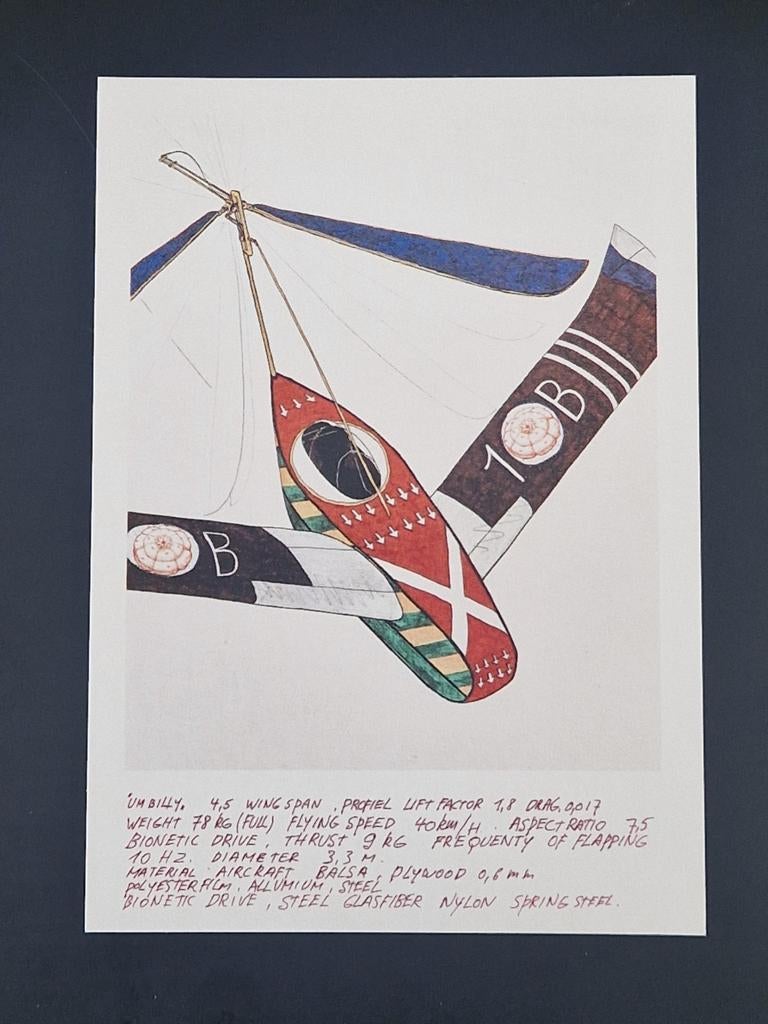 10B
B
"UMBILLY" 4,5 WINGSPAN, PROFIEL LIFT FACTOR 1,8 DRAG. 0,017
WEIGHT 78 KG (FULL) FLYING SPEED 40 KM/H. ASPECT RATIO 7,5
BIONETIC DRIVE, THRUST 9 KG FREQUENTY OF FLAPPING
10 HZ. DIAMETER 3,3 M.
MATERIAL AIRCRAFT BALSA, PLYWOOD 0,6 mm
POLYESTERFILM, ALLUMIUM, STEEL
BIONETIC DRIVE, STEEL GLASFIBER NYLON SPRING STEEL.